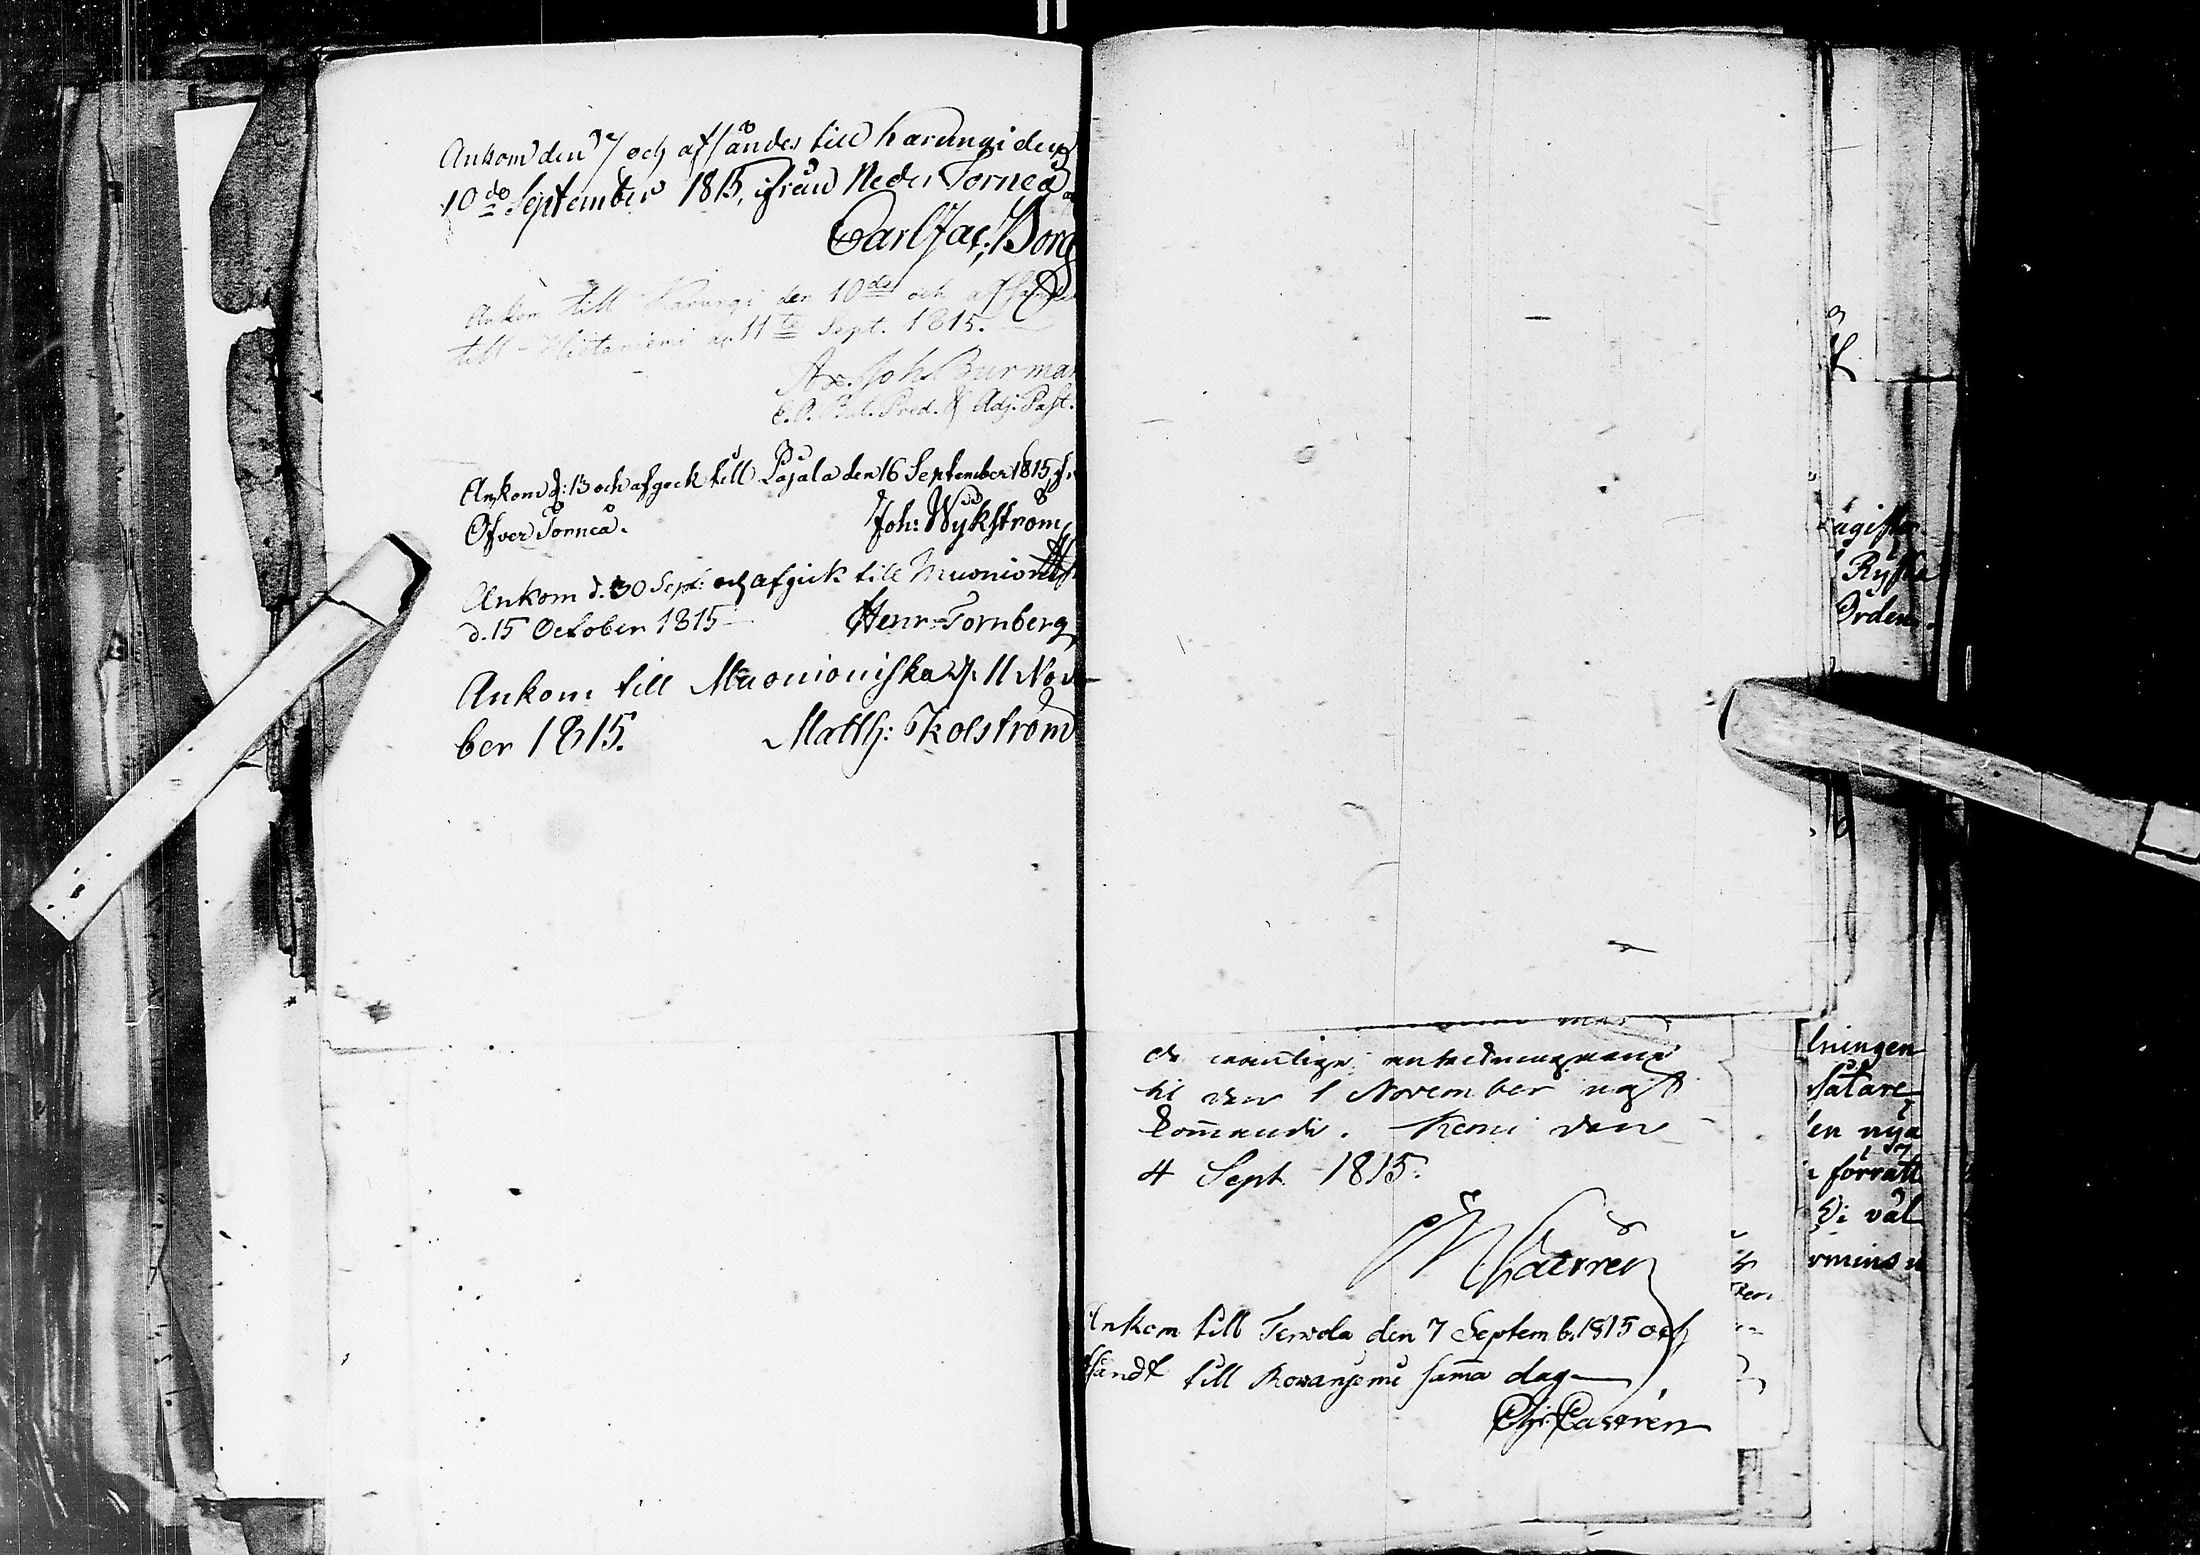 Ankom den 7 och afsändes till Karungi den
10de September 1815, ifrån Neder Torneå
Carl Jac. Borg
Ankom till Karungi den 10de och afsändes
till Hietaniemi d. 11te Sept. 1815.
Joh. Burman
Pred. & Adj. Past.
Ankom d: 13 och afgeck till Pajala den 16 September 1815, fr
Öfver Torneå.
Joh: Wykström
Ankom d. 30 Sept: och afgick till Muonio
d. 15 October 1815
Henr. Fornberg
Ankom till Muonioniska d. 11 Nov-
ber 1815.
Matth: Kolström
til den 1 November
kommande. Kemi den
4 Sept. 1815.
M Castren
Ankom till Terwola den 7 Septemb. 1815 och
sändt till Rowanjemi samma dag
Chr: Castrén
Ryska
Orden.
lningen
en nya
i förrätt
Vi väl
rmins